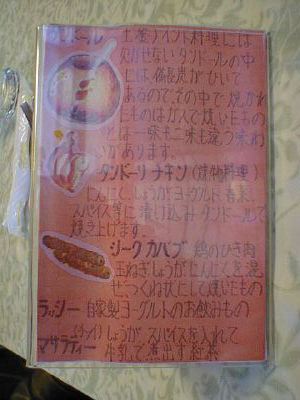 タンドール 土窯)インド料理には
欠かせないタンドールの中
には、備長炭がひいて
あるので、その中で焼かれ
たものはガスで焼いたもの
とは一味も二味も違う味わ
いがあります。
タンドーリチキン(焼物料理)
にんにく、しょうが、ヨーグルト、香菜、
スパイス等に漬け込みタンドールで
焼き上げます。
シークカバブ 鶏のひき肉
玉ねぎしょうがにんにくを混
ぜ、つくね状にして焼いたもの
ラッシー 自家製ヨーグルトのお飲みもの
マサラティー (チャイ)しょうが、スパイスを入れて
牛乳で煮出す紅茶